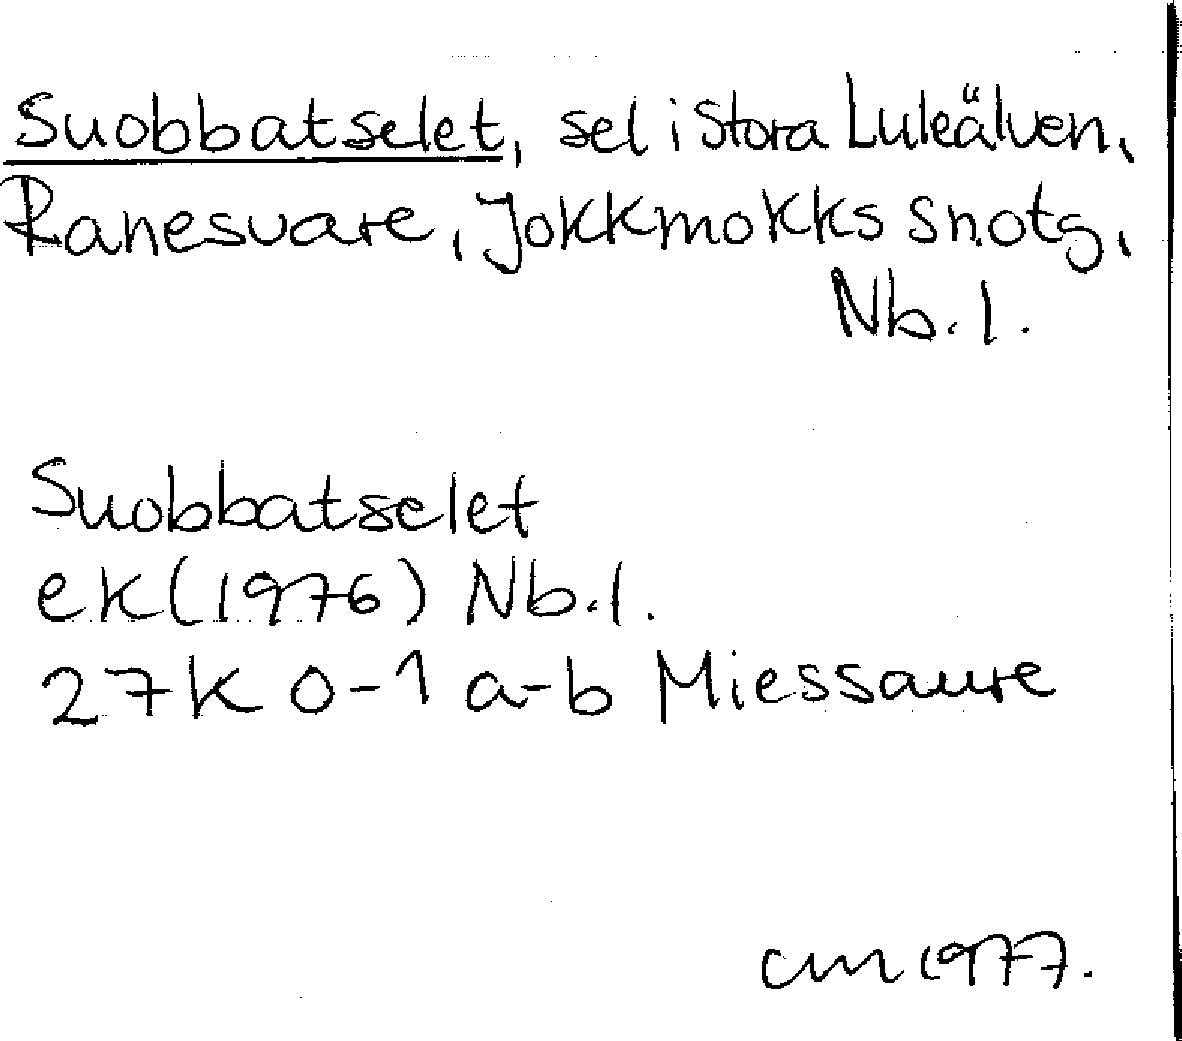 Suobbatselet, sel i Stora Luleälven,
Ranesvare, Jokkmokks sn. otg,
Nb. l.
Suobbatselet
ek (1976) Nb. l.
27K 0-1 a-b Messaure
cm 1977.